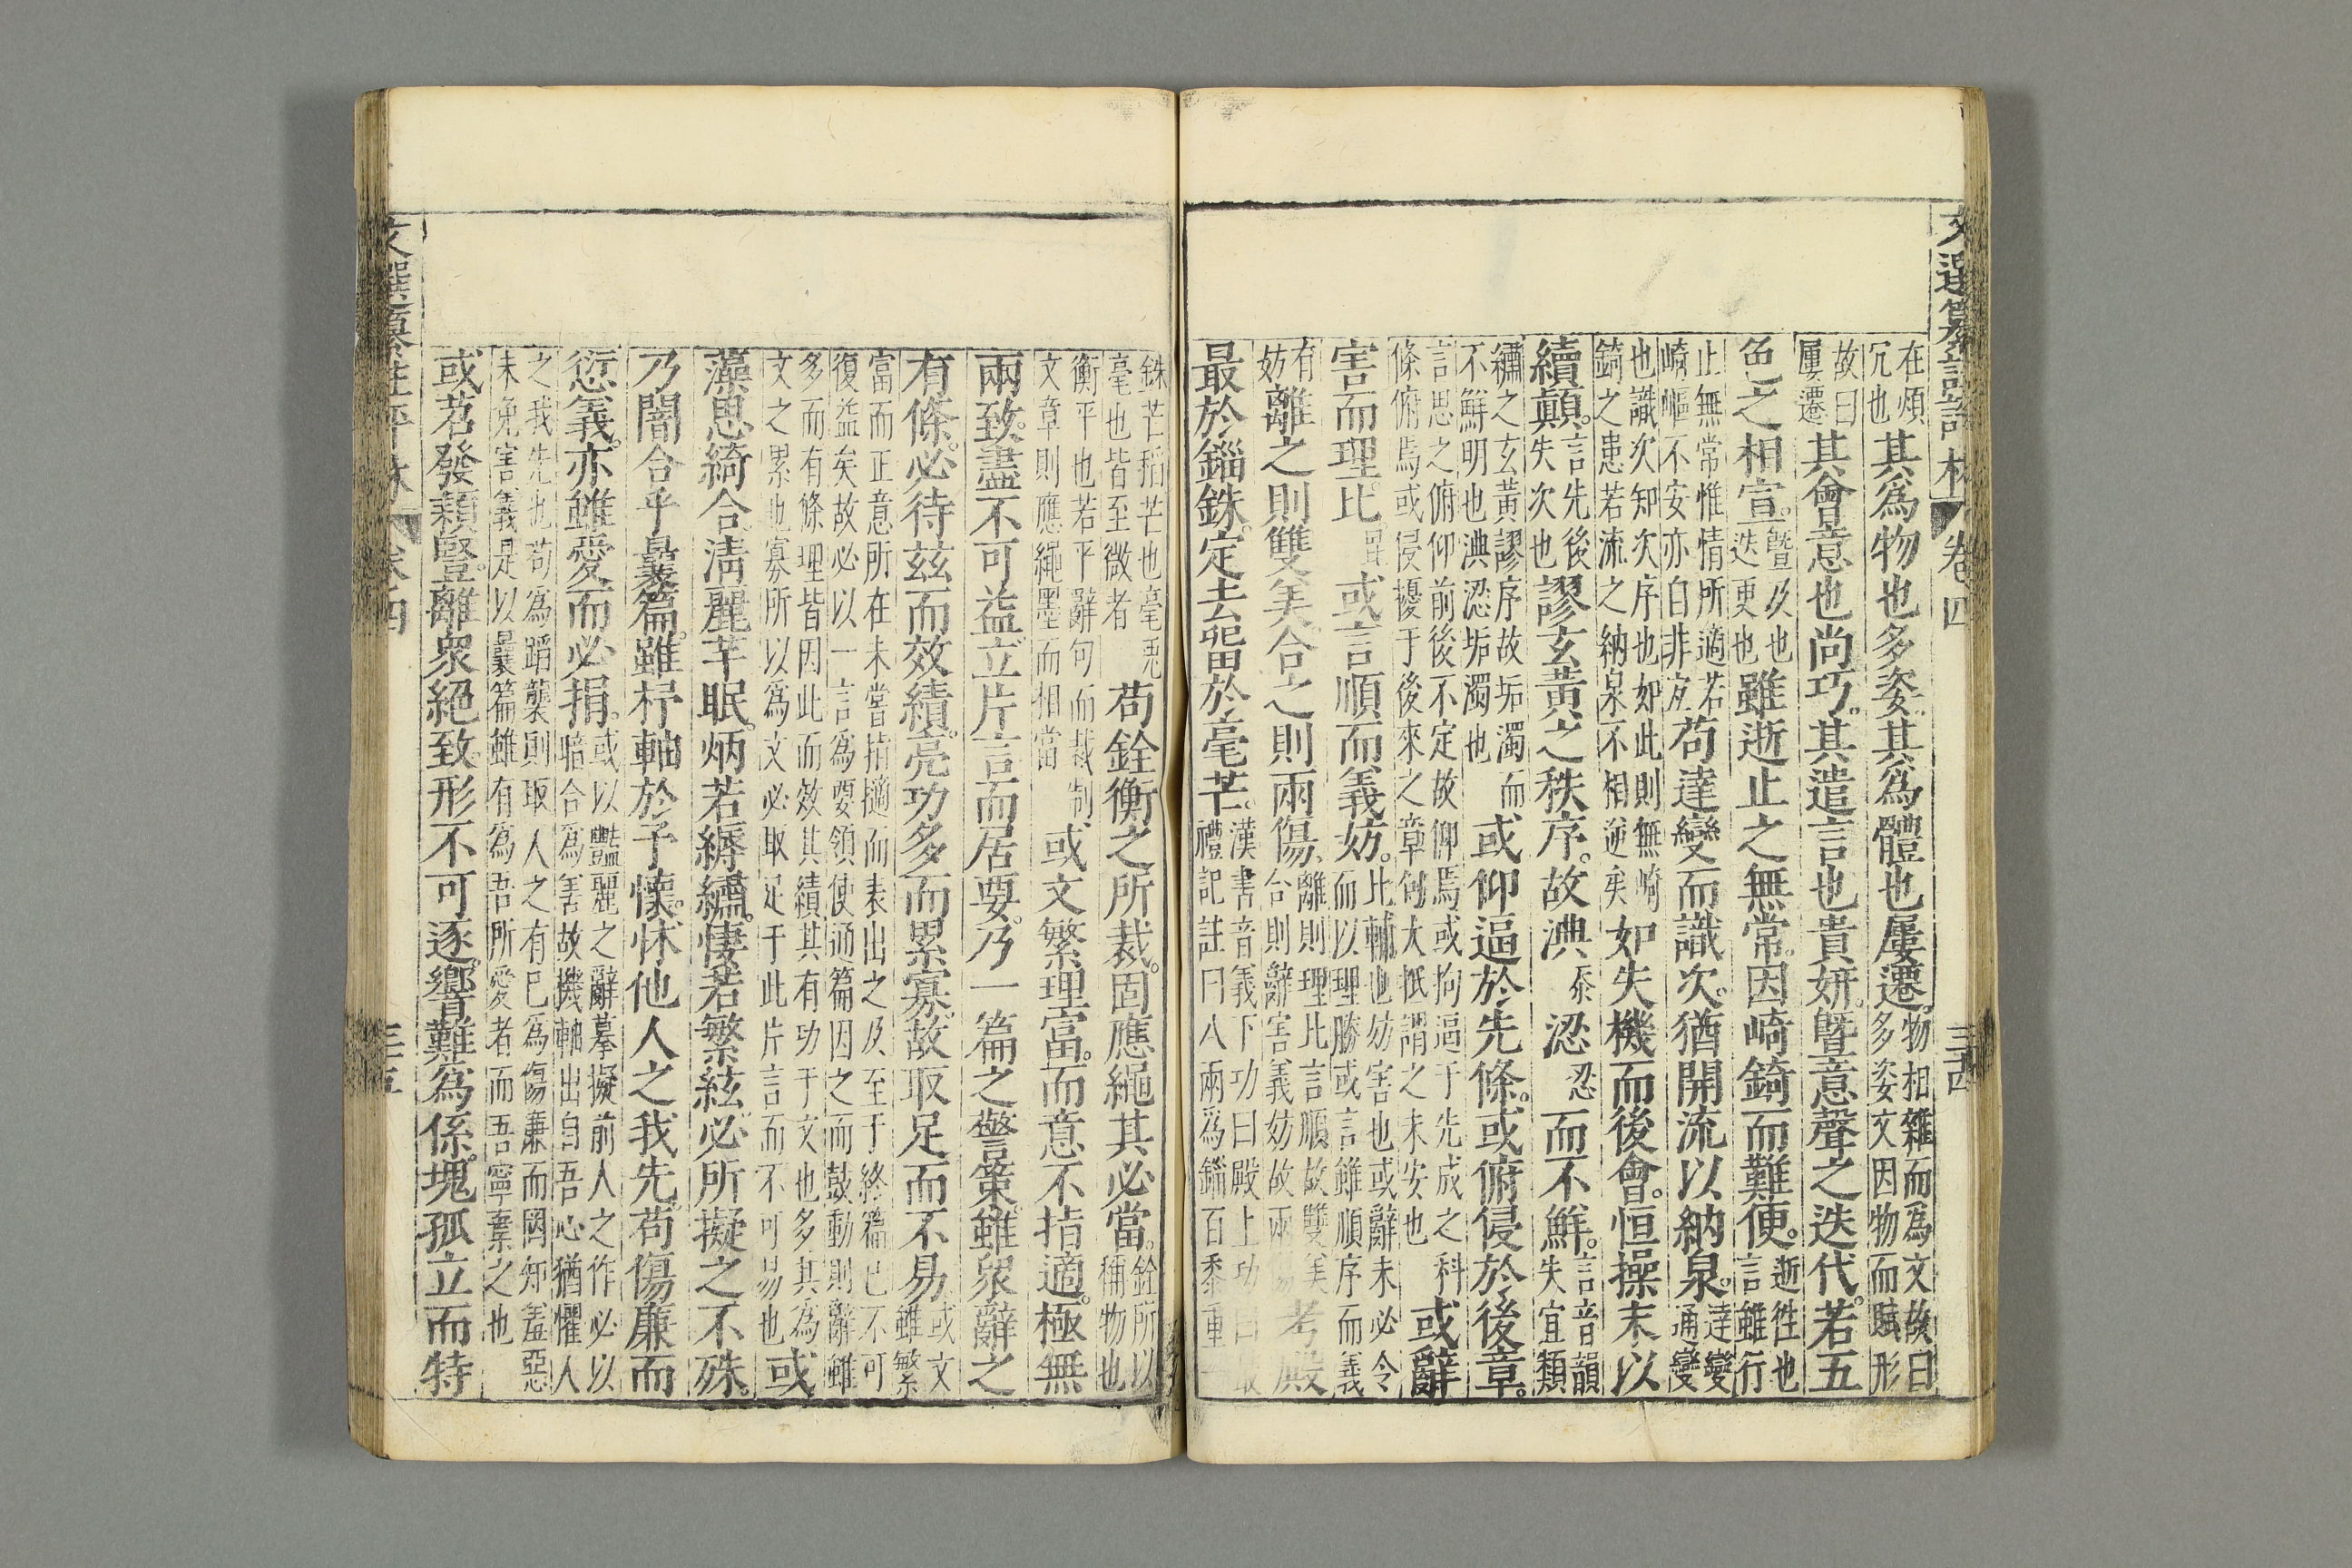 文選纂註評林 卷四 三十四
在煩冗也其爲物也多姿其爲體也屢遷。物相雜而爲文故曰多姿文因物而賦形
故曰屢遷其會意也尚巧。其遣言也貴妍。曁意聲之迭代。若五
色之相宣。曁及也迭更也雖逝止之無常。因崎錡而難便。逝徃也言雖行
止無常惟情所適若崎嶇不安亦自非宐苟達變而識次。猶開流以納泉。達變通變
也識次知次序也如此則無崎錡之患若流之納泉不相逆矣如失機而後會。恒操末以
續顛。言先後失次也謬玄黃之秩序。故淟忝涊忍而不鮮。言音韻失宜類
繡之玄黃謬序故垢濁而不鮮明也淟涊垢濁也或仰逼於先條。或俯侵於後章。
言思之俯仰前後不定故仰焉或拘逼于先成之科條俯焉或侵擾于後來之章句大抵謂之未安也或辭
害而理比或言順而義妨。比輔也妨害也或辭未必令而以理勝或言雖順序而義
有妨離之則雙美。合之則兩傷。離則理比言順故雙美合則辭害義妨故兩傷考殿
最於錙銖。定去留於毫芒。漢書音義下功曰殿上功曰最禮記註曰八兩爲錙百黍重一
銖芒稻芒也毫兎毫也皆至微者苟銓衡之所裁。固應繩其必當。銓所以稱物也
衡平也若平辭句而裁制文章則應繩墨而相當或文繁理富。而意不指適。極無
兩致。盡不可益。立片言而居要。乃一篇之警策。雖衆辭之
有條。必待茲而效績。亮功多而累寡。故取足而不易或文雖繁
富而正意所在未嘗指摘而表出之及至于終篇已不可復益矣故必以一言爲要領使通篇因之而鼓動則辭雖
多而有條理皆因此而效其績其有功于文也多其爲文之累也寡所以爲文必取足于此片言而不可易也或
藻思綺合。淸麗芊眠。炳若縟繡。悽若繁絃。必所擬之不殊。
乃闇合乎曩篇。雖杼軸於予懷。怵他人之我先。苟傷廉而
愆義。亦雖愛而必捐。或以豔麗之辭摹擬前人之作必以暗合爲羞故機軸出自吾心猶懼人
之我先也苟爲蹈襲則取人之有已爲傷亷而罔知羞惡未免害義是以曩篇雖有爲吾所愛者而吾寧棄之也
或苕發穎豎。離衆絕致。形不可逐。響難爲係。塊孤立而特
文選纂註評林 卷四 三十五